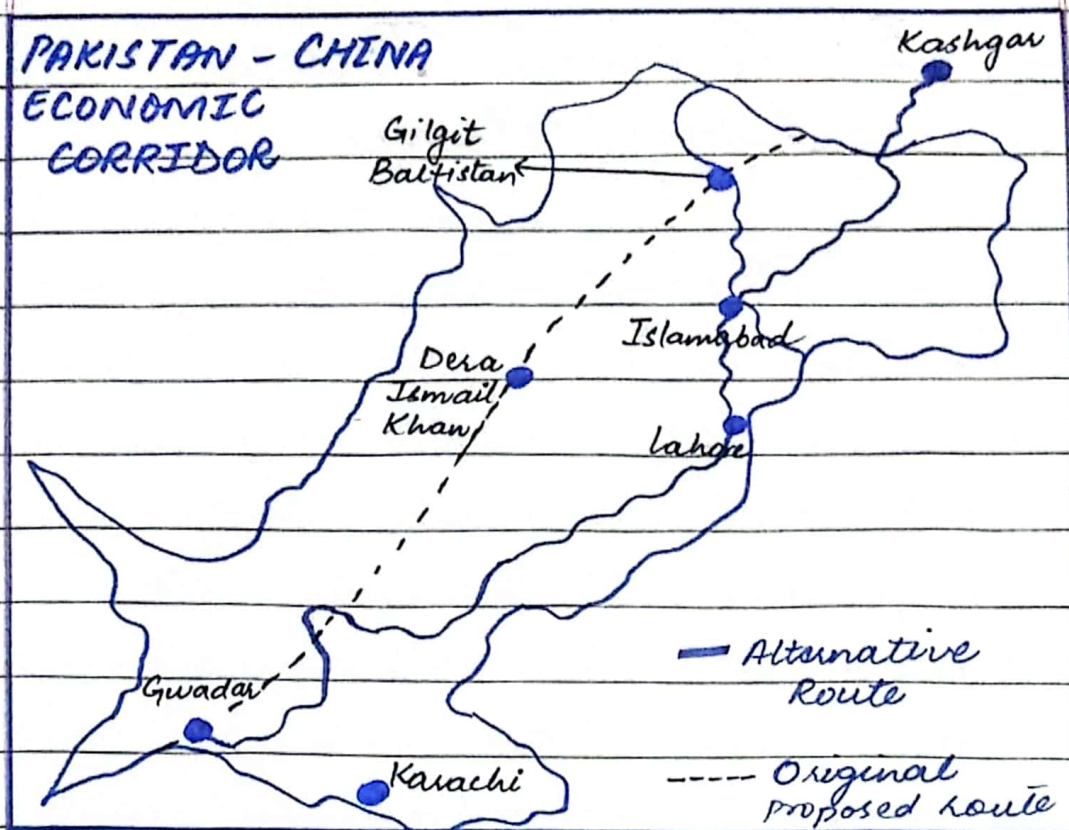 PAKISTAN - CHINA
ECONOMIC
CORRIDOR
Kashgar
Gilgit
Baltistan
Islamabad
Dera
Ismail
Khan
Lahore
Gwadar
Karachi
Alternative
Route
Original
proposed route